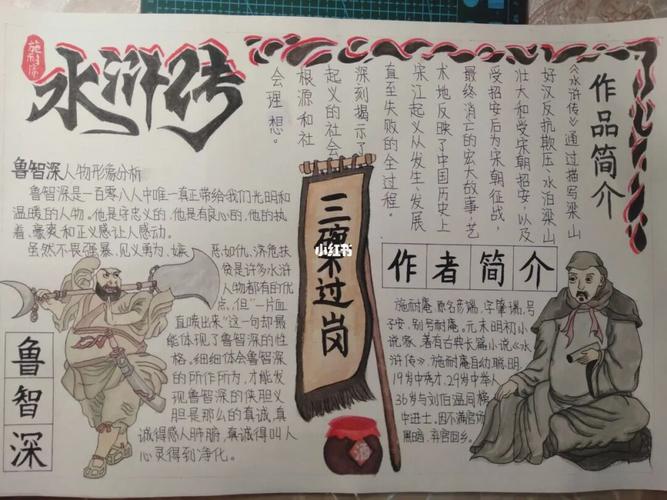 施耐庵
水浒传
作品简介
《水浒传》通过描写梁山
好汉反抗欺压、水泊梁山
壮大和受宋朝招安,以及
受招安后为宋朝征战,
最终消亡的宏大故事,艺
术地反映了中国历史上
宋江起义从发生、发展
直至失败的全过程。
深刻揭示了
起义的社会
根源和社
会理想。
鲁智深人物形象分析
鲁智深是一百零八人中唯一真正带给我们光明和
温暖的人物。他是守忠义的,他是有良心的,他的执
着、豪爽和正义感让人感动。
虽然不畏强暴、见义勇为、嫉
恶如仇、济危扶
贫是许多水浒
人物都有的优
点,但"一片血
直喷出来"这一句却最
能体现了鲁智深的性
格。细细体会鲁智深
的所作所为,才能发
现鲁智深的侠胆义
胆是那么的真诚,真
诚得感人肺腑,真诚得叫人
心灵得到净化。
鲁智深
三碗不过岗
小红书
作者简介
施耐庵,原名彦端,字肇瑞,号
子安,别号耐庵。元末明初小
说家,著有古典长篇小说《水
浒传》。施耐庵自幼聪明,
19岁中秀才,29岁中举人
36岁与刘伯温同榜
中进士,因不满官场
黑暗,弃官回乡。